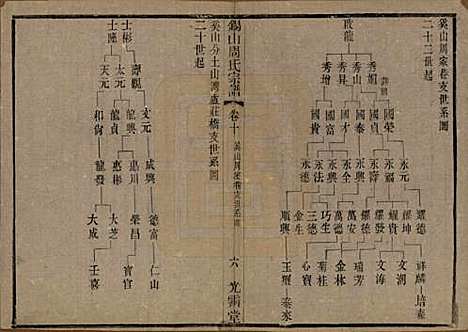 吴山周家巷支世系圖
二十二世起
啟龍
秀娟 秀山 秀昇 秀增
國榮 國貞 國泰 國才 國富 國貴
永元 永福 永濤 永興 永全 永法 永德
耀德 耀坤 耀貴 耀發 耀德 萬安 萬德 巧生 三德 金生 順興
祥麟 文潮 文海 瑞芳 金林 菊桂 心寶 玉根
培泰
錫山周氏宗譜
卷十
六
光霽堂
吴山分土山灣盧莊橋支世系圖
二十世起
士彬 士隆
濟觀 太元 天元
文元 龍興 龍貞 和尚
咸興 惠川 惠彬 龍發
德富 榮昌 大芝 大成
仁山 寶官 壬喜